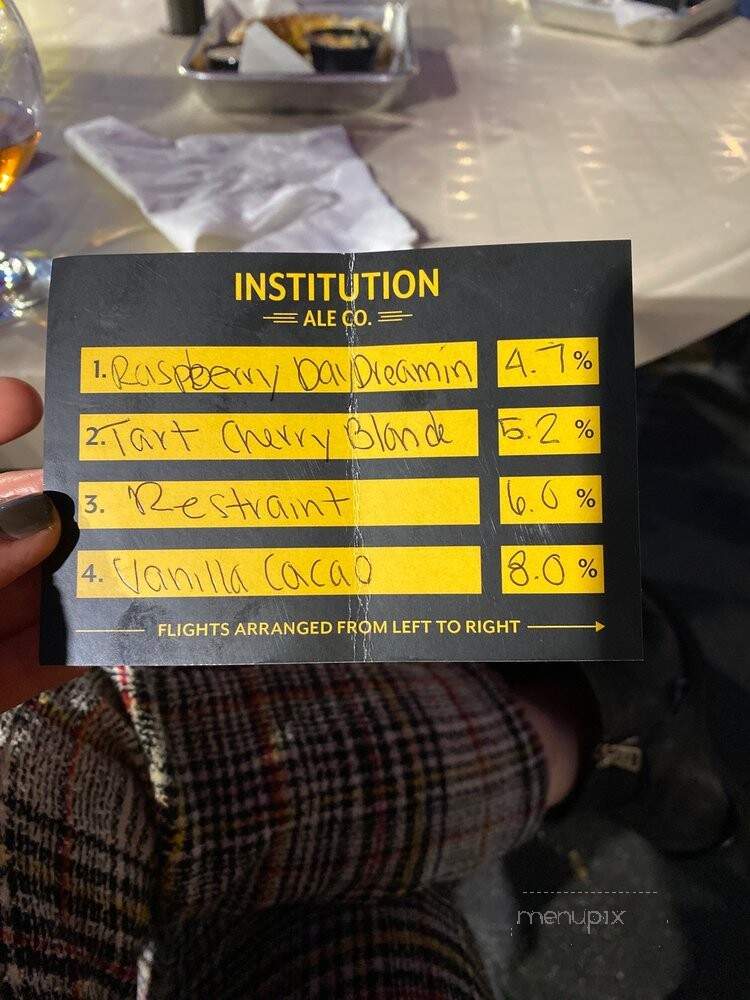 INSTITUTION
ALE CO.
1. Raspberry DayDreamin 4.7%
2. Tart Cherry Blonde 5.2 %
3. Restraint 6.0 %
4. Vanilla Cacao 8.0 %
FLIGHTS ARRANGED FROM LEFT TO RIGHT
menupix